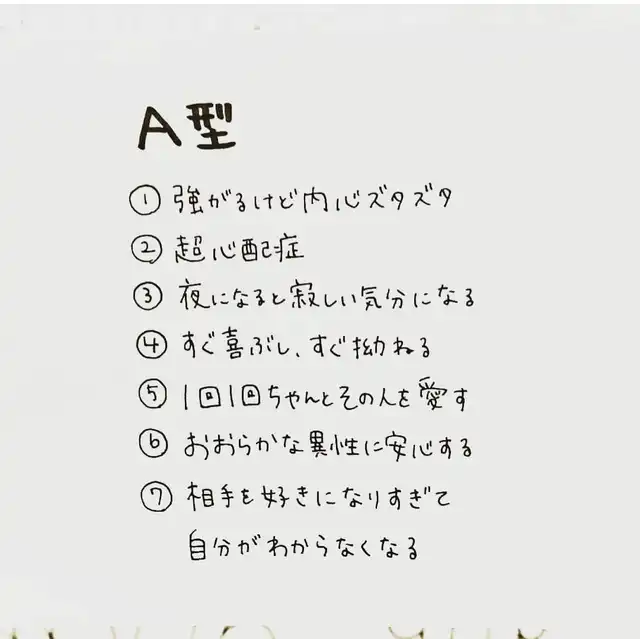 A型
① 強がるけど内心ズタズタ
② 超心配症
③ 夜になると寂しい気分になる
④ すぐ喜ぶし、すぐ拗ねる
⑤ 1回1回ちゃんとその人を愛す
⑥ おおらかな異性に安心する
⑦ 相手を好きになりすぎて
自分がわからなくなる